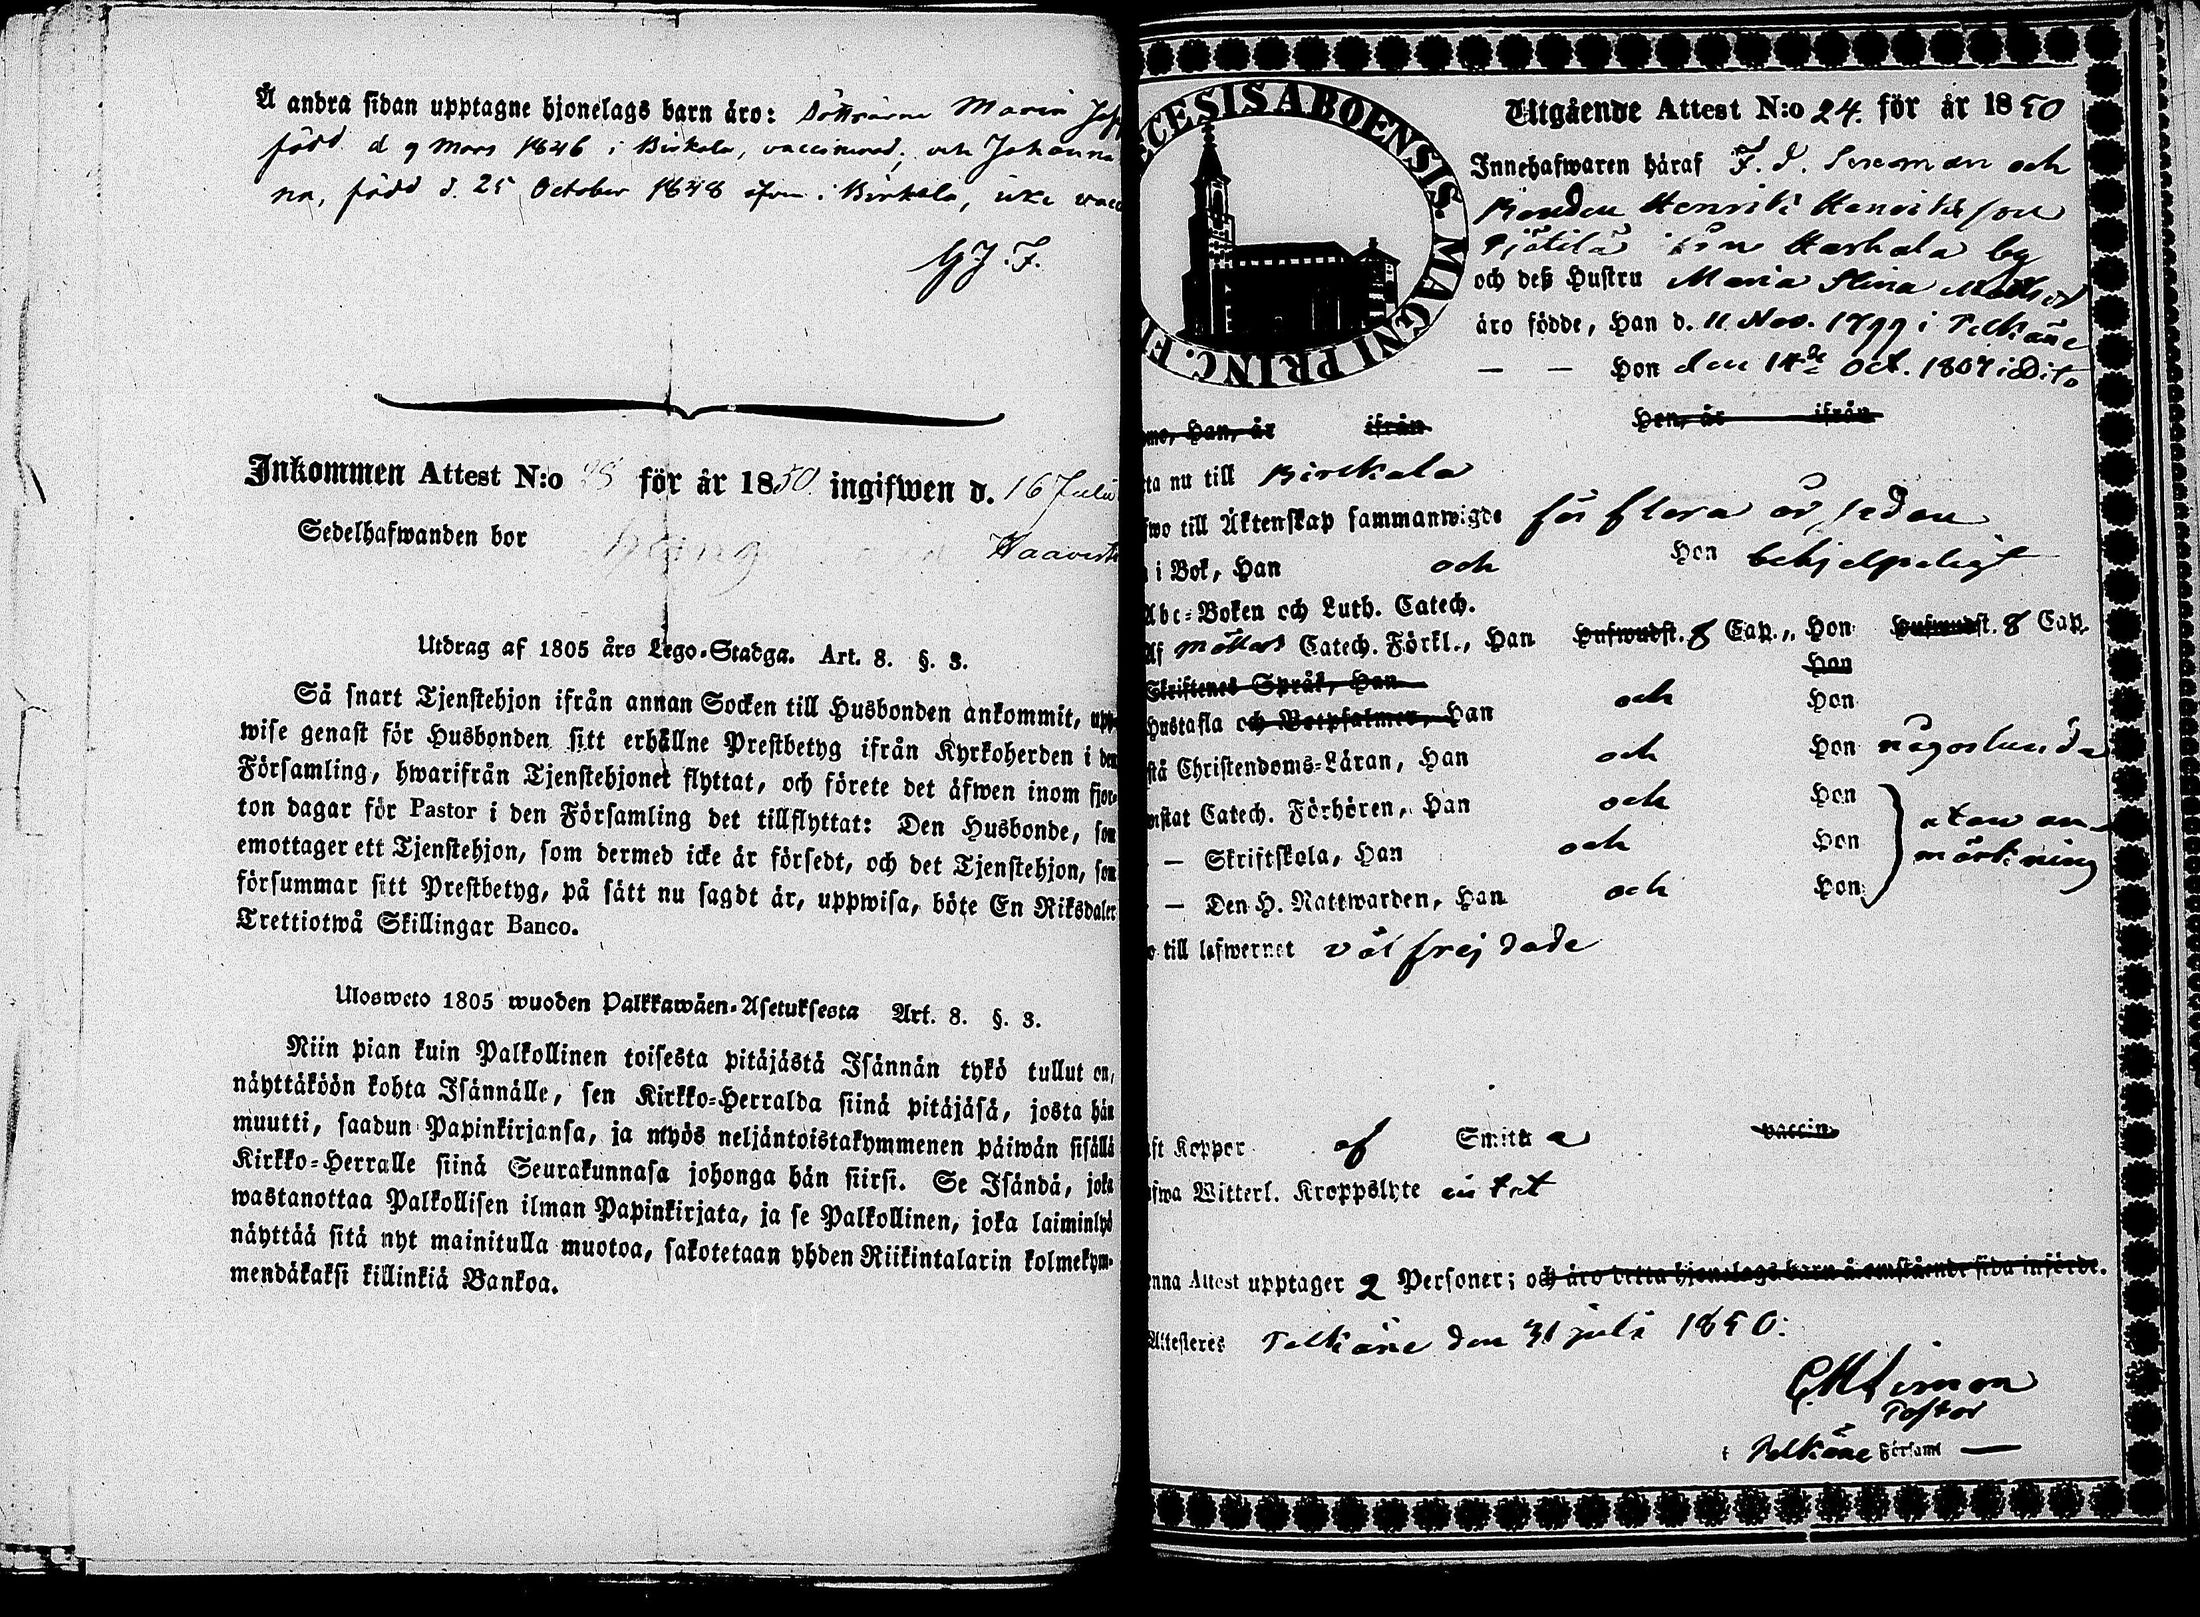 Å andra sidan upptagne hjonelags barn äro: Döttrarne Maria
född d 9 Mars 1846 i Birkala, vaccinerad, och Johanna
na, född d. 25 October 1848 i Birkala, icke
G J. F.
Inkommen Attest N:o för år 1850. ingifwen d. 16 Julii
Sedelhafwanden bor Haavisto
Utdrag af 1805 års Lego-Stadga. Art. 8. §. 3.
Så snart Tjenstehjon ifrån annan Socken till Husbonden ankommit, upp-
wise genast för Husbonden sitt erhållne Prestbetyg ifrån Kyrkoherden i den
Församling, hwarifrån Tjenstehjonet flyttat, och förete det äfwen inom fjor-
ton dagar för Pastor i den Församling det tillflyttat: Den Husbonde, som
emottager ett Tjenstehjon, som dermed icke är försedt, och det Tjenstehjon, som
försummar sitt Prestbetyg, på sätt nu sagdt är, uppwisa, böte En Riksdaler
Trettiotwå Skillingar Banco.
Ulosweto 1805 wuoden Palkkawäen-Asetuksesta Art. 8. §. 3.
Niin pian kuin Palkollinen toisesta pitäjästä Isännän tykö tullut on,
näyttäköön kohta Isännälle, sen Kirkko-Herralda siinä pitäjäsä, josta hän
muutti, saadun Papinkirjansa, ja myös neljäntoistakymmenen päiwän sisällä
Kirkko-Herralle siinä Seurakunnasa johonga hän siirsi. Se Isändä, joka
wastanottaa Palkollisen ilman Papinkirjata, ja se Palkollinen, joka laiminlyö
näyttää sitä nyt mainitulla muotoa, sakotetaan yhden Riikintalarin kolmekym-
mendäkaksi killinkiä Bankoa.
ECESIS ABOENSIS. MAGNI PRINC. FI
Utgående Attest N:o 24. för år 1850
Innehafwaren häraf F. d. och
Bonden Henrik Henriksson
från by
och deß Hustru Maria Stina
äro födde, Han d. 11 Nov. 1799 i Pelkäne
— — Hon den 14de Oct. 1807 i Dito
mo, Han, år ifrån Hon, år ifrån
ta nu till Birckala
fwo till Äktenskap sammanwigde för flera år sedan
i Bok, Han och Hon behjelpeligt
Abc-Boken och Luth. Catech.
Af Möllers Catech. Förkl., Han hufwudst. 8 Cap., Hon hufwudst. 8 Cap.
Skriftenes Språk, Han Hon
Hustafla och Botpsalmer, Han och Hon
stå Christendoms-Läran, Han och Hon någorlunda
nstat Catech. Förhören, Han och Hon
— Skriftskola, Han och Hon utan an-
märkning
— Den H. Nattwarden, Han och Hon
o till lefwernet väl frejdade
ft Koppor af Smitta vaccin
fwa Witterl. Kroppslyte intet
enna Attest upptager 2 Personer; och äro detta hjonelags barn å omstående sida införde.
Attesteres Pelkäne den 31 juli 1850.
Pastor
i Pelkäne Församl —